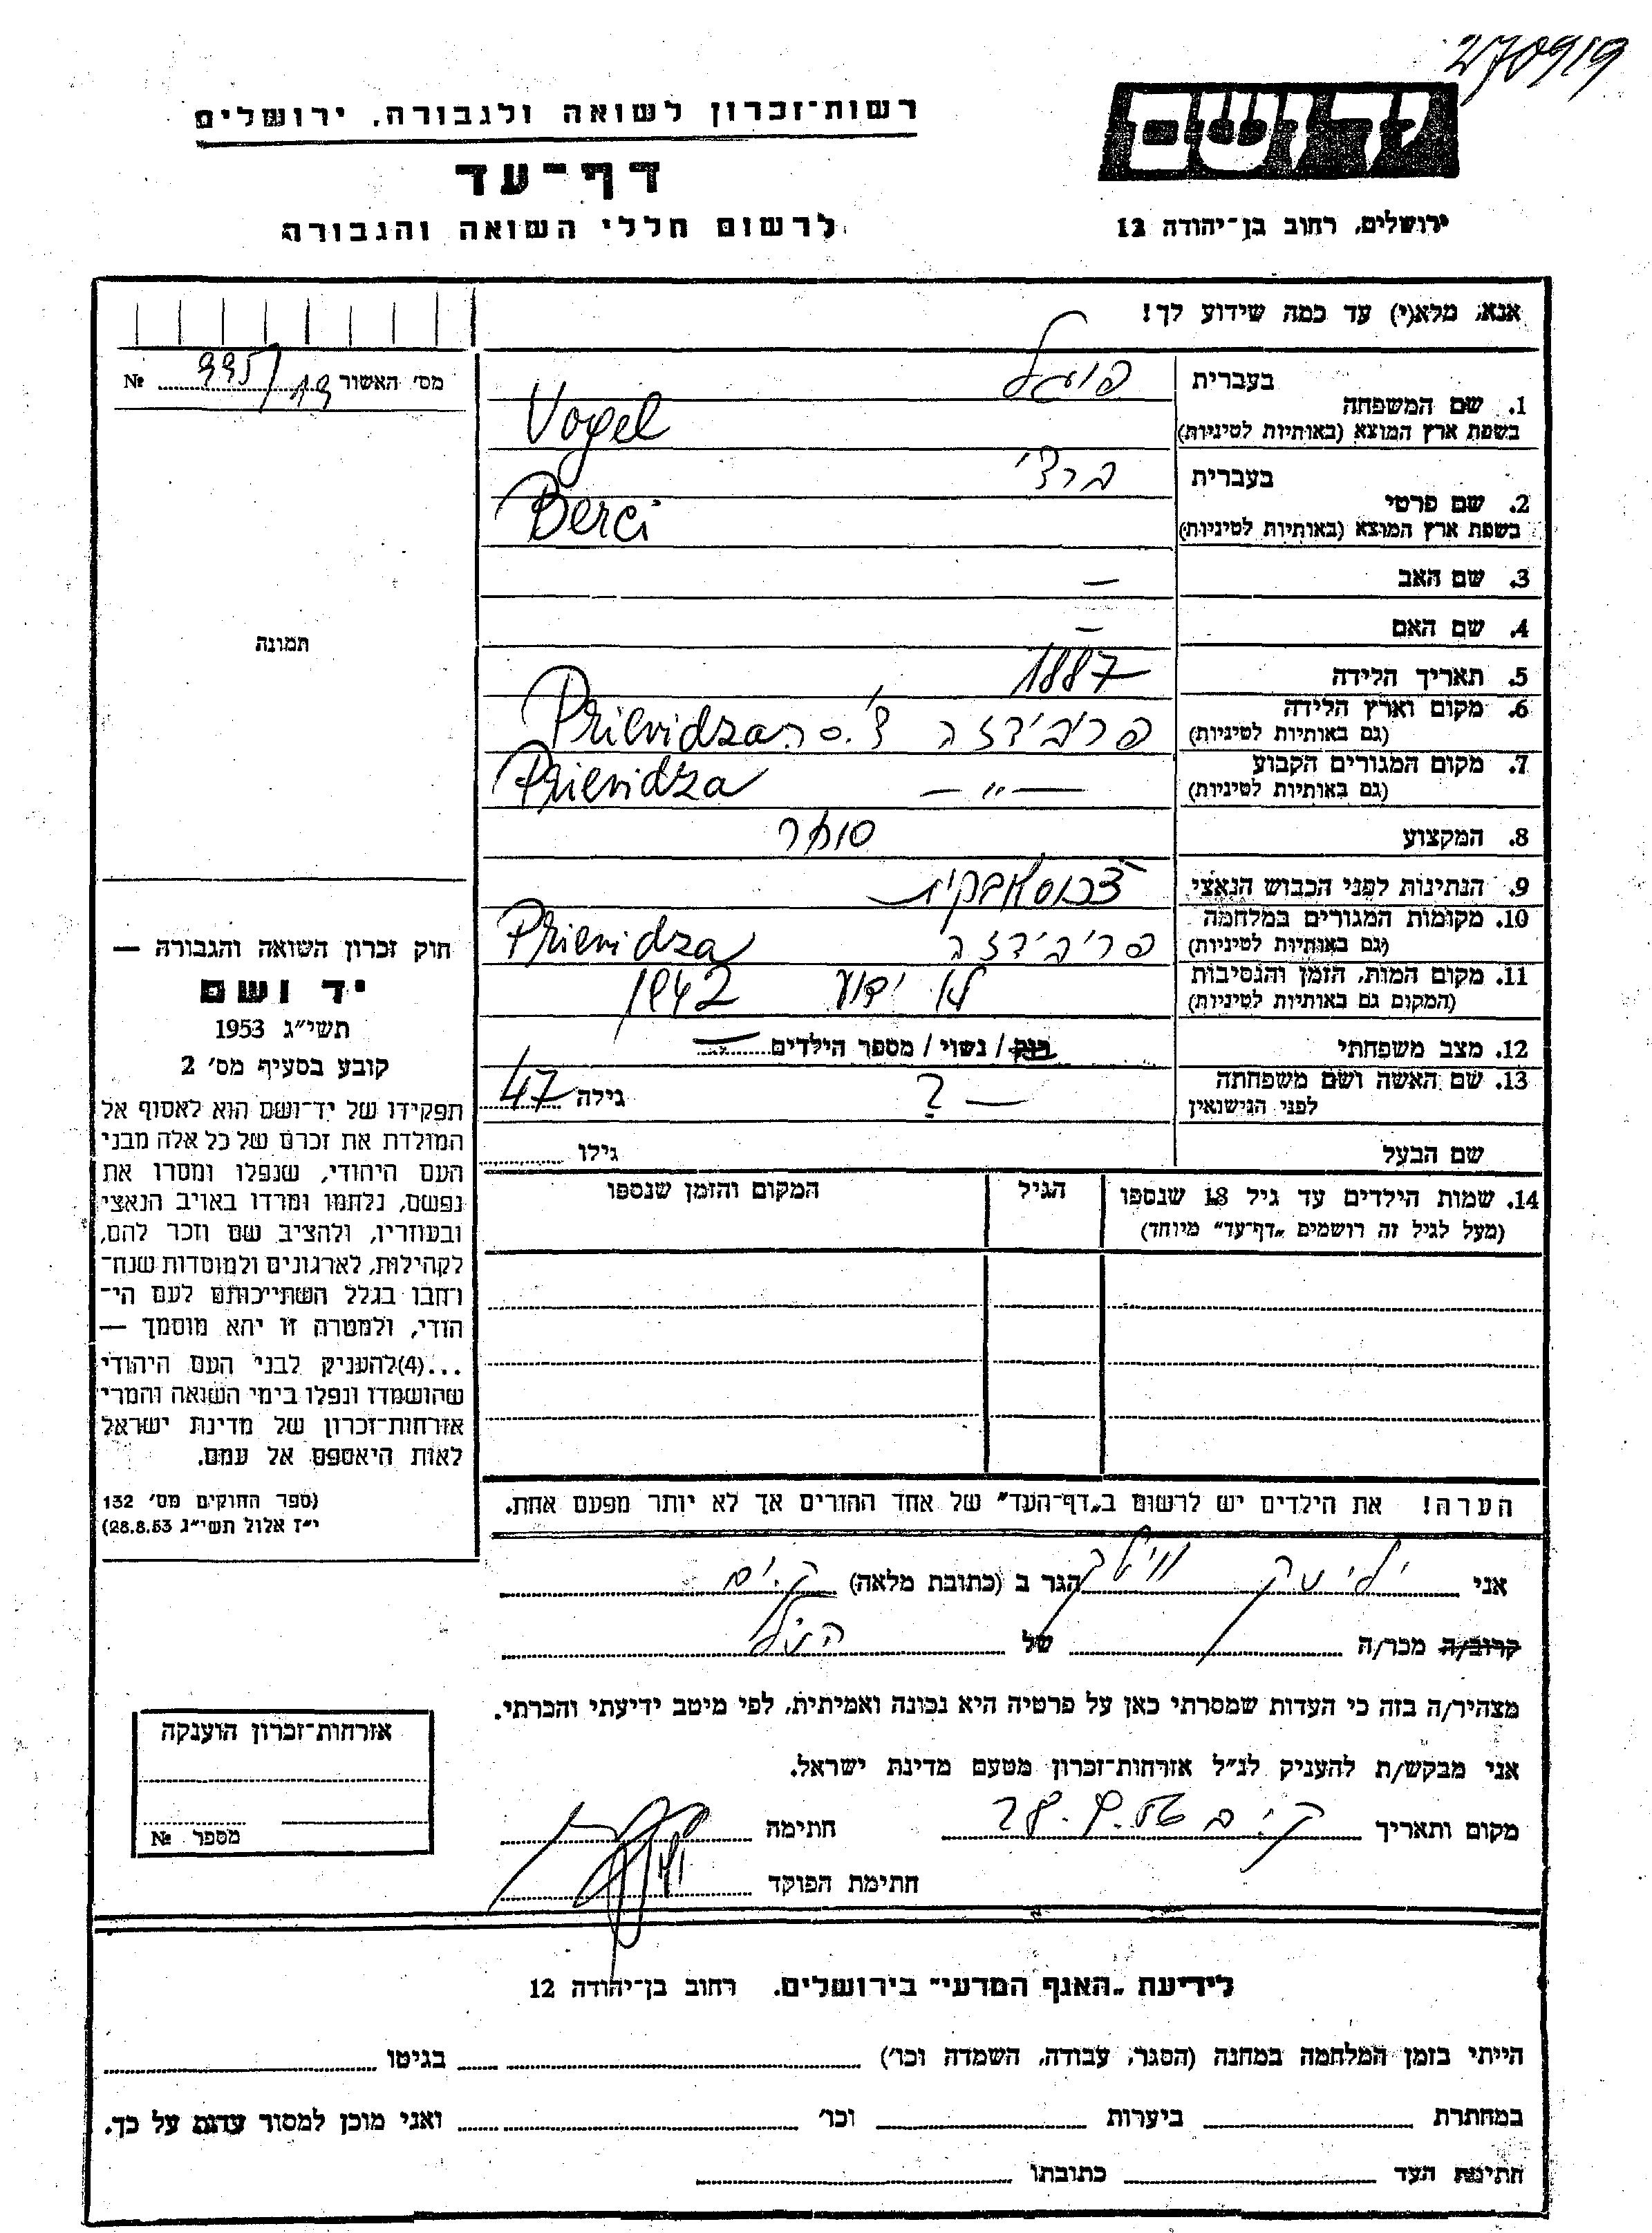 270919
ידושם
רשות־זכרון לשואה ולגבורה. ירושלים
דף־עד
לרשום חללי השואה והגבורה
ירושלים, רחוב בן־יהודה 12
אנא, מלא(י) עד כמה שידוע לך!
מס׳ האשור 995/19 №
תמונה
1. שם המשפחה
בעברית פוגל
בשפת ארץ המוצא (באותיות לטיניות) Vogel
2. שם פרטי
בעברית ברצי
בשפת ארץ המוצא (באותיות לטיניות) Berci
3. שם האב —
4. שם האם —
5. תאריך הלידה 1887
6. מקום וארץ הלידה
(גם באותיות לטיניות) פריבידזה צ׳.ס.ר. Prievidza
7. מקום המגורים הקבוע
(גם באותיות לטיניות) — ״ — Prievidza
8. המקצוע סוחר
9. הנתינות לפני הכבוש הנאצי צ׳כוסלובקית
10. מקומות המגורים במלחמה
(גם באותיות לטיניות) פריבידזה Prievidza
11. מקום המות, הזמן והנסיבות
(המקום גם באותיות לטיניות) לא ידוע 1942
12. מצב משפחתי רוק / נשוי / מספר הילדים —
13. שם האשה ושם משפחתה
לפני הנישואין — ? גילה 47
שם הבעל גילו
14. שמות הילדים עד גיל 18 שנספו
(מעל לגיל זה רושמים „דף־עד” מיוחד)
הגיל
המקום והזמן שנספו
הערה! את הילדים יש לרשום ב„דף־העד” של אחד ההורים אך לא יותר מפעם אחת.
חוק זכרון השואה והגבורה —
יד ושם
תשי״ג 1953
קובע בסעיף מס׳ 2
תפקידו של יד־ושם הוא לאסוף אל
המולדת את זכרם של כל אלה מבני
העם היהודי, שנפלו ומסרו את
נפשם, נלחמו ומרדו באויב הנאצי
ובעוזריו, ולהציב שם וזכר להם,
לקהילות, לארגונים ולמוסדות שנח־
רחבו בגלל השתייכותם לעם הי־
הודי, ולמטרה זו יהא מוסמך —
...(4)להעניק לבני העם היהודי
שהושמדו ונפלו בימי השואה והמרי
אזרחות־זכרון של מדינת ישראל
לאות היאספם אל עמם.
(ספר החוקים מס׳ 132
י״ז אלול תשי״ג 28.8.53)
אני הגר ב (כתובת מלאה) ק. ים
קרוב/ה מכר/ה של הנ״ל
מצהיר/ה בזה כי העדות שמסרתי כאן על פרטיה היא נכונה ואמיתית, לפי מיטב ידיעתי והכרתי.
אני מבקש/ת להעניק לנ״ל אזרחות־זכרון מטעם מדינת ישראל.
מקום ותאריך ק. ים 28.4.56 חתימה
חתימת הפוקד
אזרחות־זכרון הוענקה
מספר №
לידיעת „האגף המדעי” בירושלים. רחוב בן־יהודה 12
הייתי בזמן המלחמה במחנה (הסגר, עבודה, השמדה וכו׳) בגיטו
במחתרת ביערות וכו׳ ואני מוכן למסור עדות על כך.
חתימת העד כתובתו